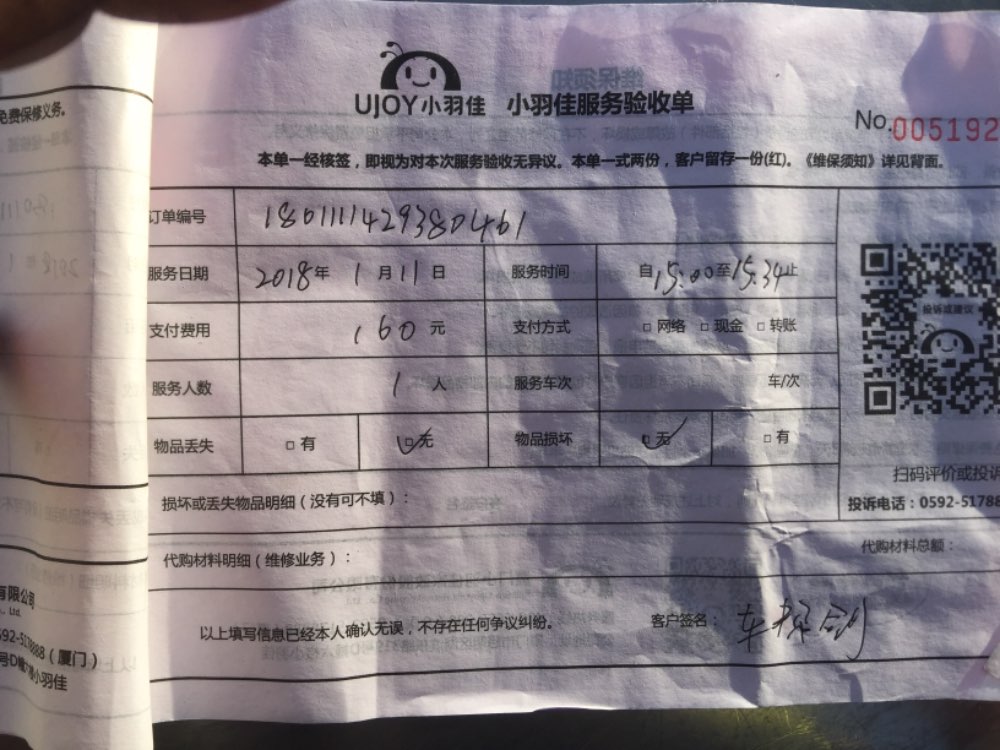 免费保修义务。
UJOY小羽佳 小羽佳服务验收单
No.005192
本单一经核签，即视为对本次服务验收无异议。本单一式两份，客户留存一份(红)。《维保须知》详见背面。
订单编号 1801111429380461
服务日期 2018年 1月11日 服务时间 自15:00至15:34止
支付费用 160元 支付方式 □网络 □现金 □转账
服务人数 1人 服务车次 车/次
物品丢失 □有 ☑无 物品损坏 ☑无 □有
投诉或建议
扫码评价或投诉
损坏或丢失物品明细（没有可不填）：
投诉电话：0592-51788
代购材料明细（维修业务）： 代购材料总额：
以上填写信息已经本人确认无误，不存在任何争议纠纷。 客户签名：
有限公司
Ltd.
592-5178888（厦门）
小羽佳